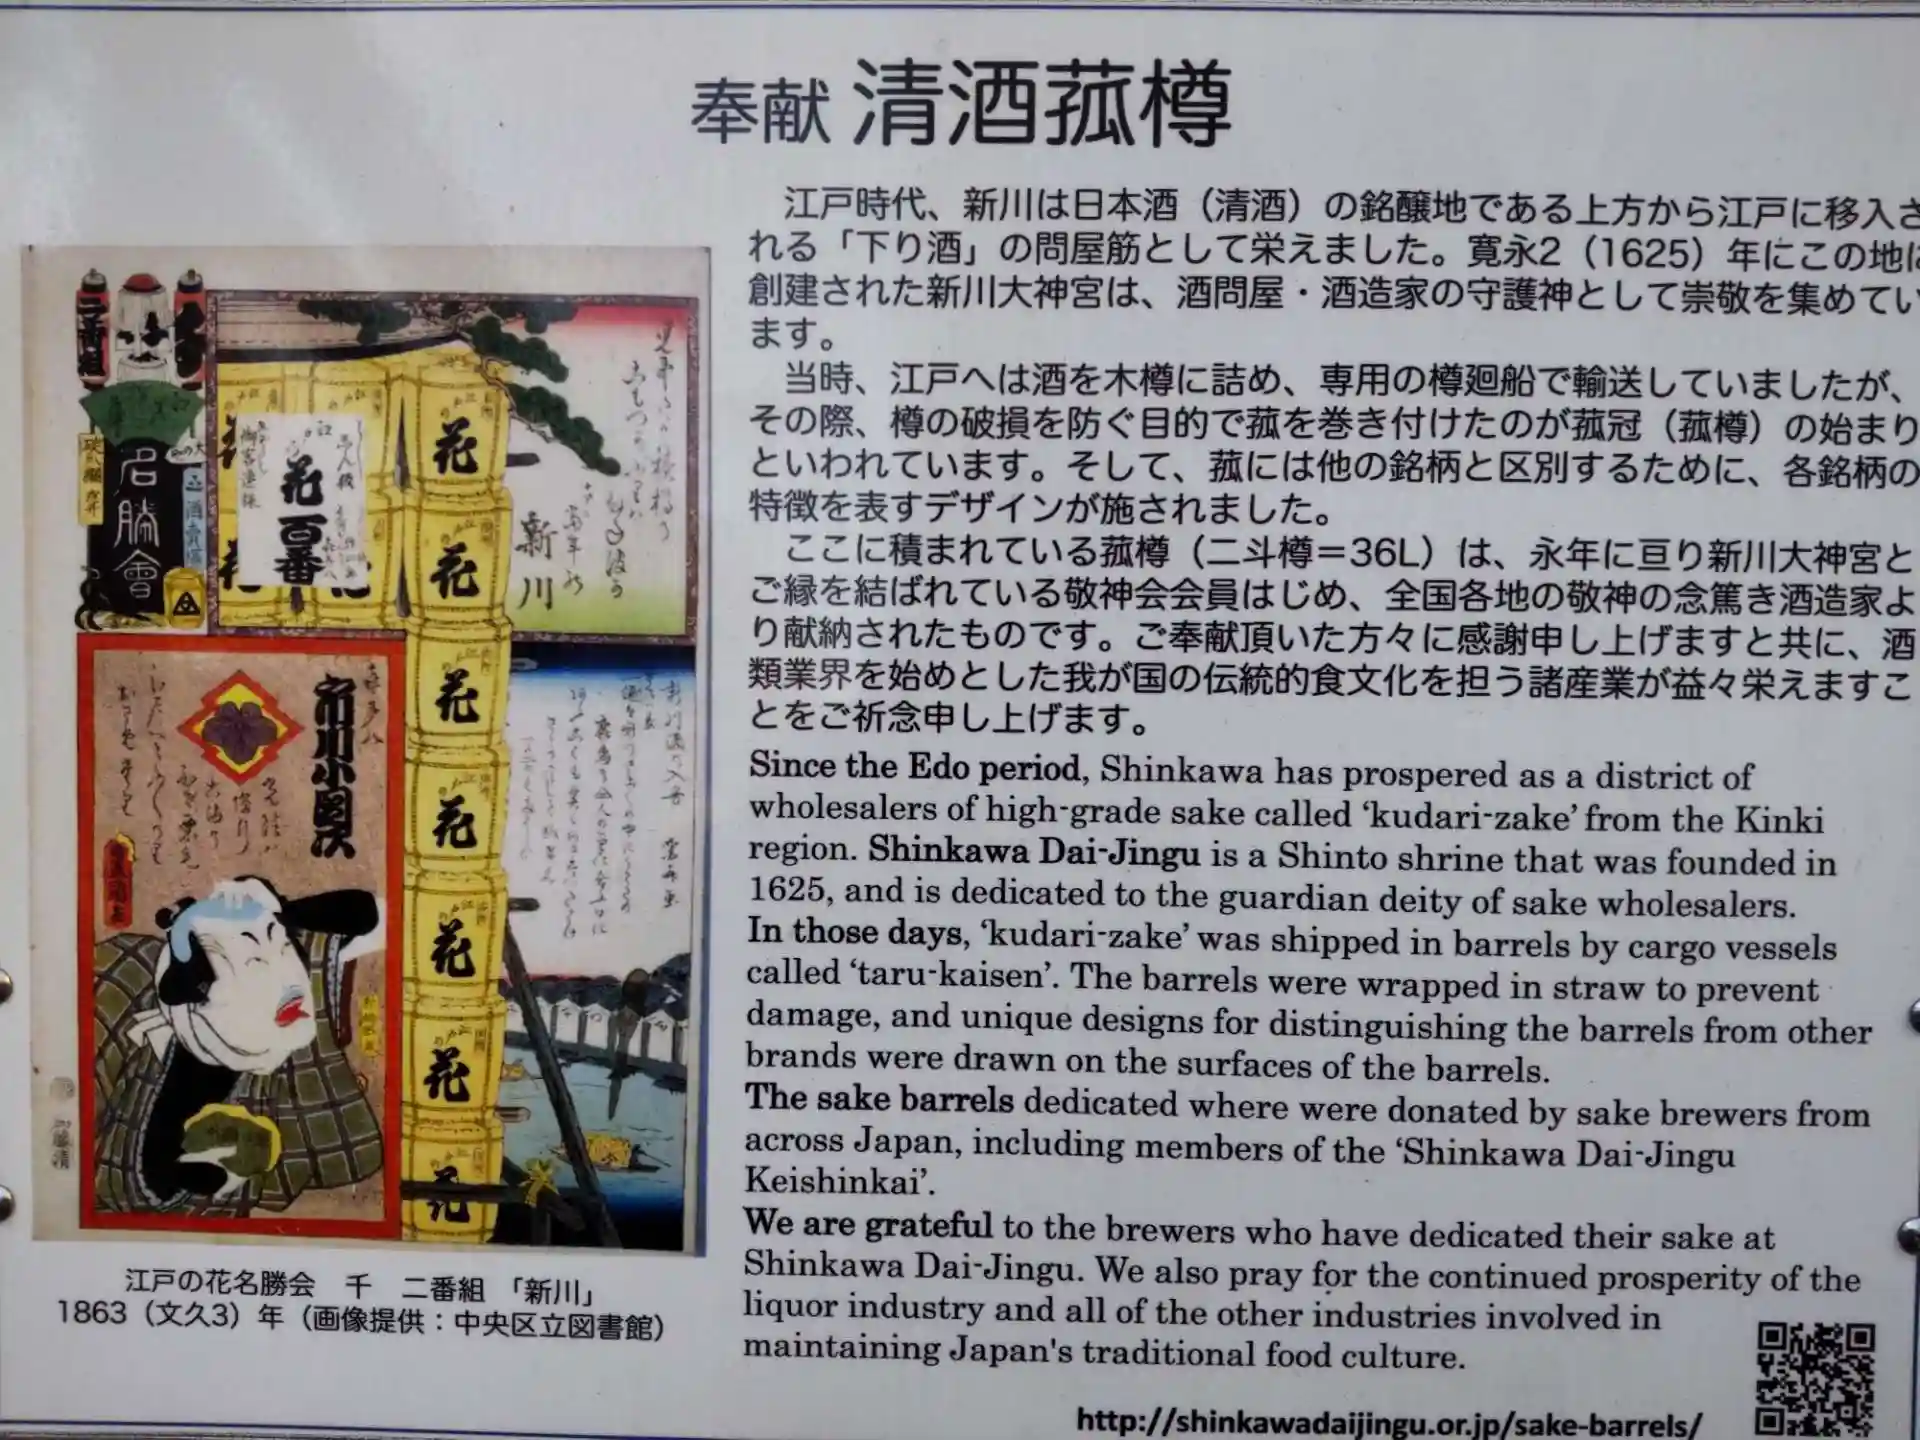 奉献 清酒菰樽
江戸時代、新川は日本酒（清酒）の銘醸地である上方から江戸に移入さ
れる「下り酒」の問屋筋として栄えました。寛永2（1625）年にこの地に
創建された新川大神宮は、酒問屋・酒造家の守護神として崇敬を集めてい
ます。
当時、江戸へは酒を木樽に詰め、専用の樽廻船で輸送していましたが、
その際、樽の破損を防ぐ目的で菰を巻き付けたのが菰冠（菰樽）の始まり
といわれています。そして、菰には他の銘柄と区別するために、各銘柄の
特徴を表すデザインが施されました。
ここに積まれている菰樽（二斗樽＝36L）は、永年に亘り新川大神宮と
ご縁を結ばれている敬神会会員はじめ、全国各地の敬神の念篤き酒造家よ
り献納されたものです。ご奉献頂いた方々に感謝申し上げますと共に、酒
類業界を始めとした我が国の伝統的食文化を担う諸産業が益々栄えますこ
とをご祈念申し上げます。
Since the Edo period, Shinkawa has prospered as a district of
wholesalers of high-grade sake called ‘kudari-zake’ from the Kinki
region. Shinkawa Dai-Jingu is a Shinto shrine that was founded in
1625, and is dedicated to the guardian deity of sake wholesalers.
In those days, ‘kudari-zake’ was shipped in barrels by cargo vessels
called ‘taru-kaisen’. The barrels were wrapped in straw to prevent
damage, and unique designs for distinguishing the barrels from other
brands were drawn on the surfaces of the barrels.
The sake barrels dedicated where were donated by sake brewers from
across Japan, including members of the ‘Shinkawa Dai-Jingu
Keishinkai’.
We are grateful to the brewers who have dedicated their sake at
Shinkawa Dai-Jingu. We also pray for the continued prosperity of the
liquor industry and all of the other industries involved in
maintaining Japan's traditional food culture.
http://shinkawadaijingu.or.jp/sake-barrels/
二番組
名勝會
花百番
新川
市川小団次
花
花
花
花
花
花
花
江戸の花名勝会 千 二番組 「新川」
1863（文久3）年（画像提供：中央区立図書館）